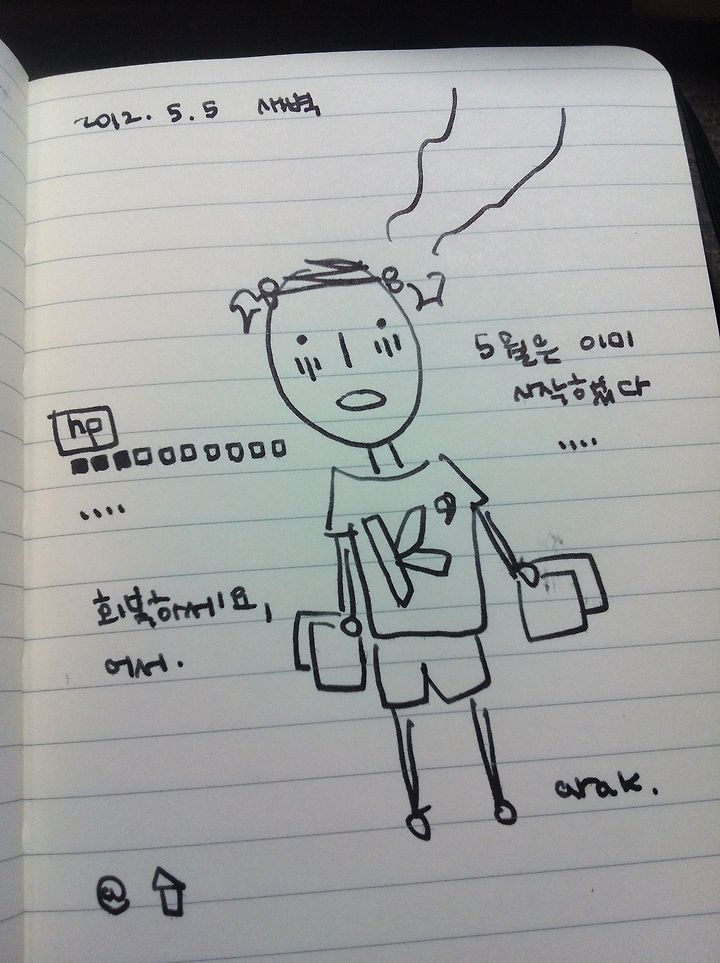 2012. 5. 5 새벽
5월은 이미
시작했다
....
hp
....
K
회복하세요,
어서.
arak.
@